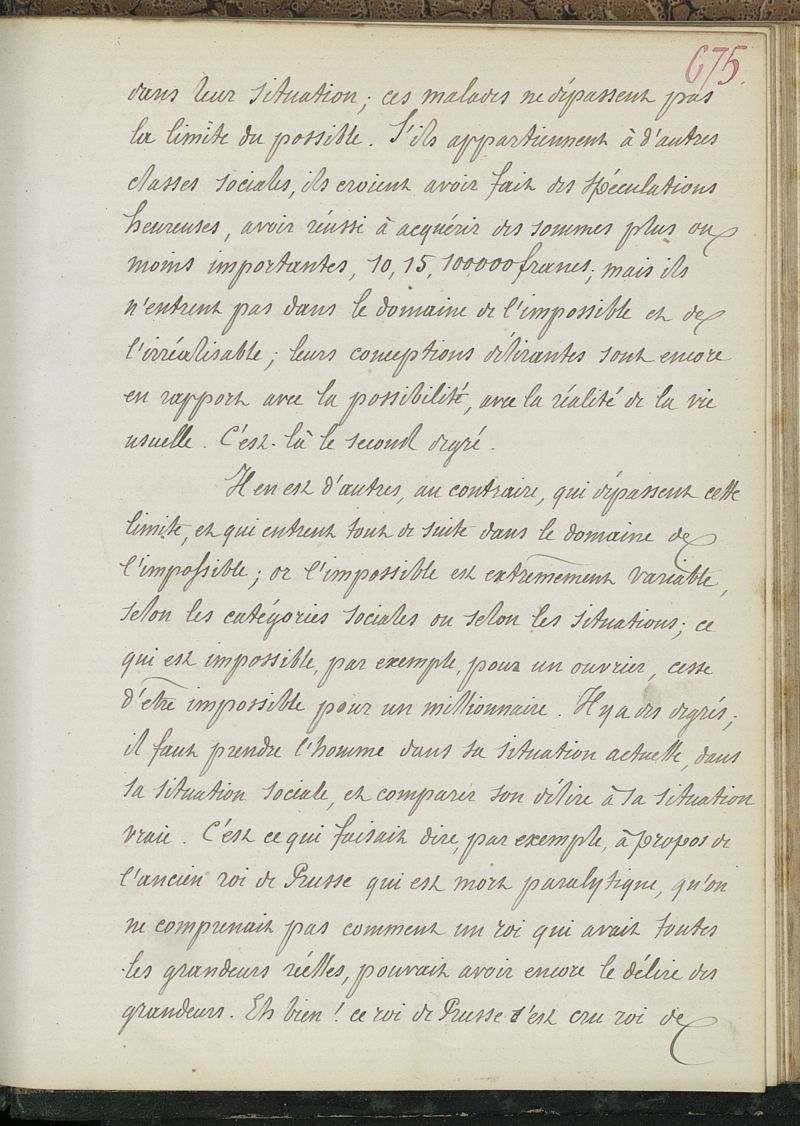 675.
dans leur situation; ces malades ne dépassent pas
la limite du possible. S'ils appartiennent à d'autres
classes sociales, ils croient avoir fait des spéculations
heureuses, avoir réussi à acquérir des sommes plus ou
moins importantes, 10, 15, 100,000 francs; mais ils
n'entrent pas dans le domaine de l'impossible et de
l'irréalisable; leurs conceptions délirantes sont encore
en rapport avec la possibilité, avec la réalité de la vie
usuelle. C'est-là le second degré.
Il en est d'autres, au contraire, qui dépassent cette
limite, et qui entrent tout de suite dans le domaine de
l'impossible; or l'impossible est extrêmement variable,
selon les catégories sociales ou selon les situations; ce
qui est impossible, par exemple, pour un ouvrier, cesse
d'être impossible pour un millionnaire. Il y a des degrés;
il faut prendre l'homme dans sa situation actuelle, dans
sa situation sociale, et comparer son délire à sa situation
vraie. C'est ce qui faisait dire, par exemple, à propos de
l'ancien roi de Prusse qui est mort paralytique, qu'on
ne comprenait pas comment un roi qui avait toutes
les grandeurs réelles, pouvait avoir encore le délire des
grandeurs. Eh bien! ce roi de Prusse s'est cru roi de